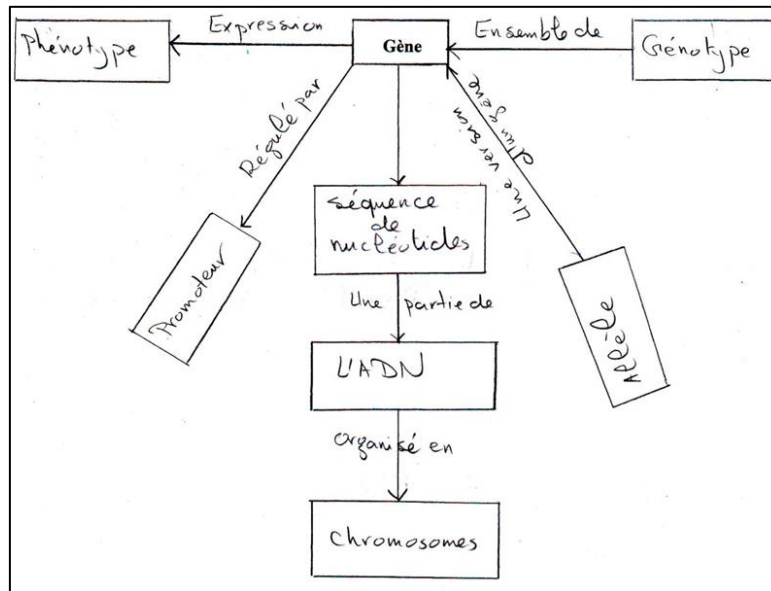 Phénotype
Expression
Gène
Ensemble de
Génotype
Régulé par
Une version
d'un gène
séquence
de
nucléotides
Promoteur
Allèle
Une partie de
L'ADN
organisé en
chromosomes